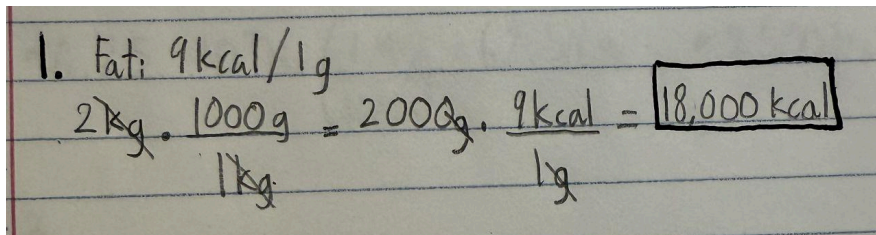 1. Fat: 9kcal/1g
2kg · 1000g/1kg = 2000g · 9kcal/1g = 18,000 kcal